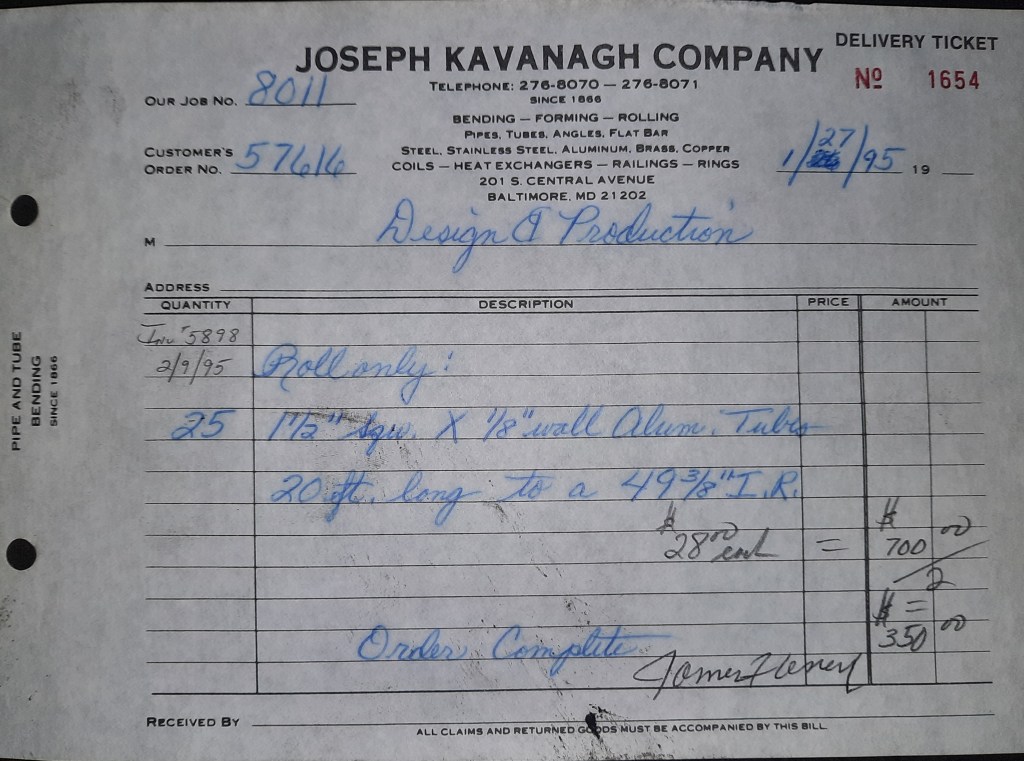 DELIVERY TICKET
JOSEPH KAVANAGH COMPANY
No 1654
TELEPHONE: 276-8070 — 276-8071
SINCE 1866
OUR JOB NO. 8011
BENDING — FORMING — ROLLING
PIPES, TUBES, ANGLES, FLAT BAR
STEEL, STAINLESS STEEL, ALUMINUM, BRASS, COPPER
COILS — HEAT EXCHANGERS — RAILINGS — RINGS
201 S. CENTRAL AVENUE
BALTIMORE, MD 21202
CUSTOMER'S
ORDER NO. 57616
1/27/95 19
M Design & Production
ADDRESS
QUANTITY DESCRIPTION PRICE AMOUNT
Inv # 5898
2/9/95 Roll only:
25 1 1/2" sqr. X 1/8" wall Alum. Tubes
20 ft. long to a 49 3/8" I.R.
$28.00 each = $700.00
/2
= $350.00
Order Complete
RECEIVED BY
ALL CLAIMS AND RETURNED GOODS MUST BE ACCOMPANIED BY THIS BILL
PIPE AND TUBE
BENDING
SINCE 1866